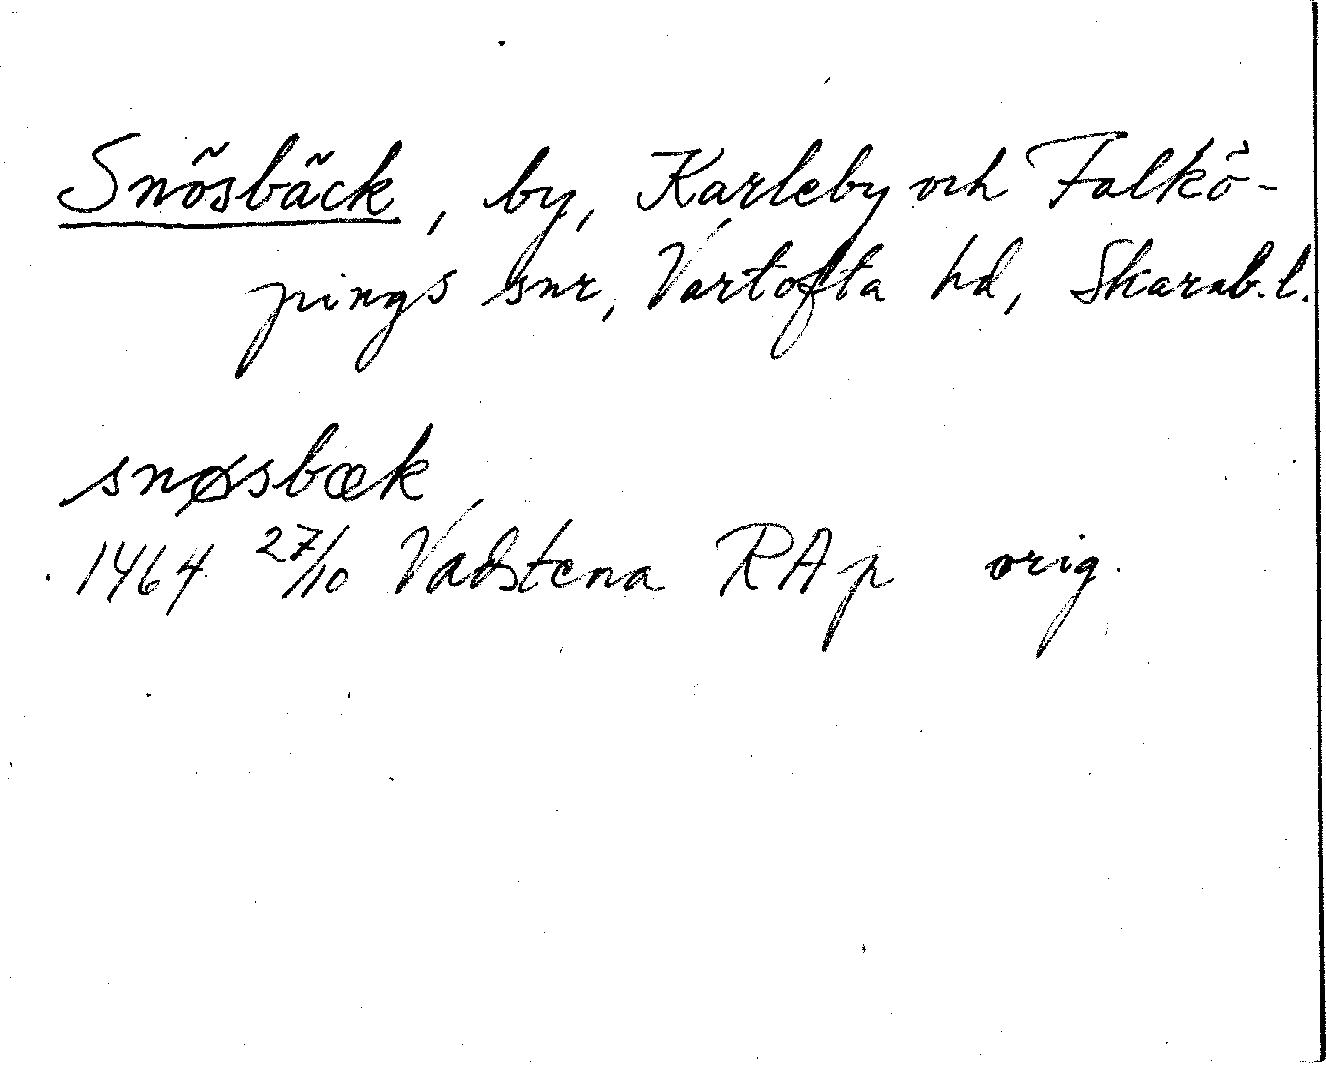 Snösbäck, by, Karleby och Falkö-
pings snr, Vartofta hd, Skarab.l.
snøsbæk
1464 27/10 Vadstena RAp orig.